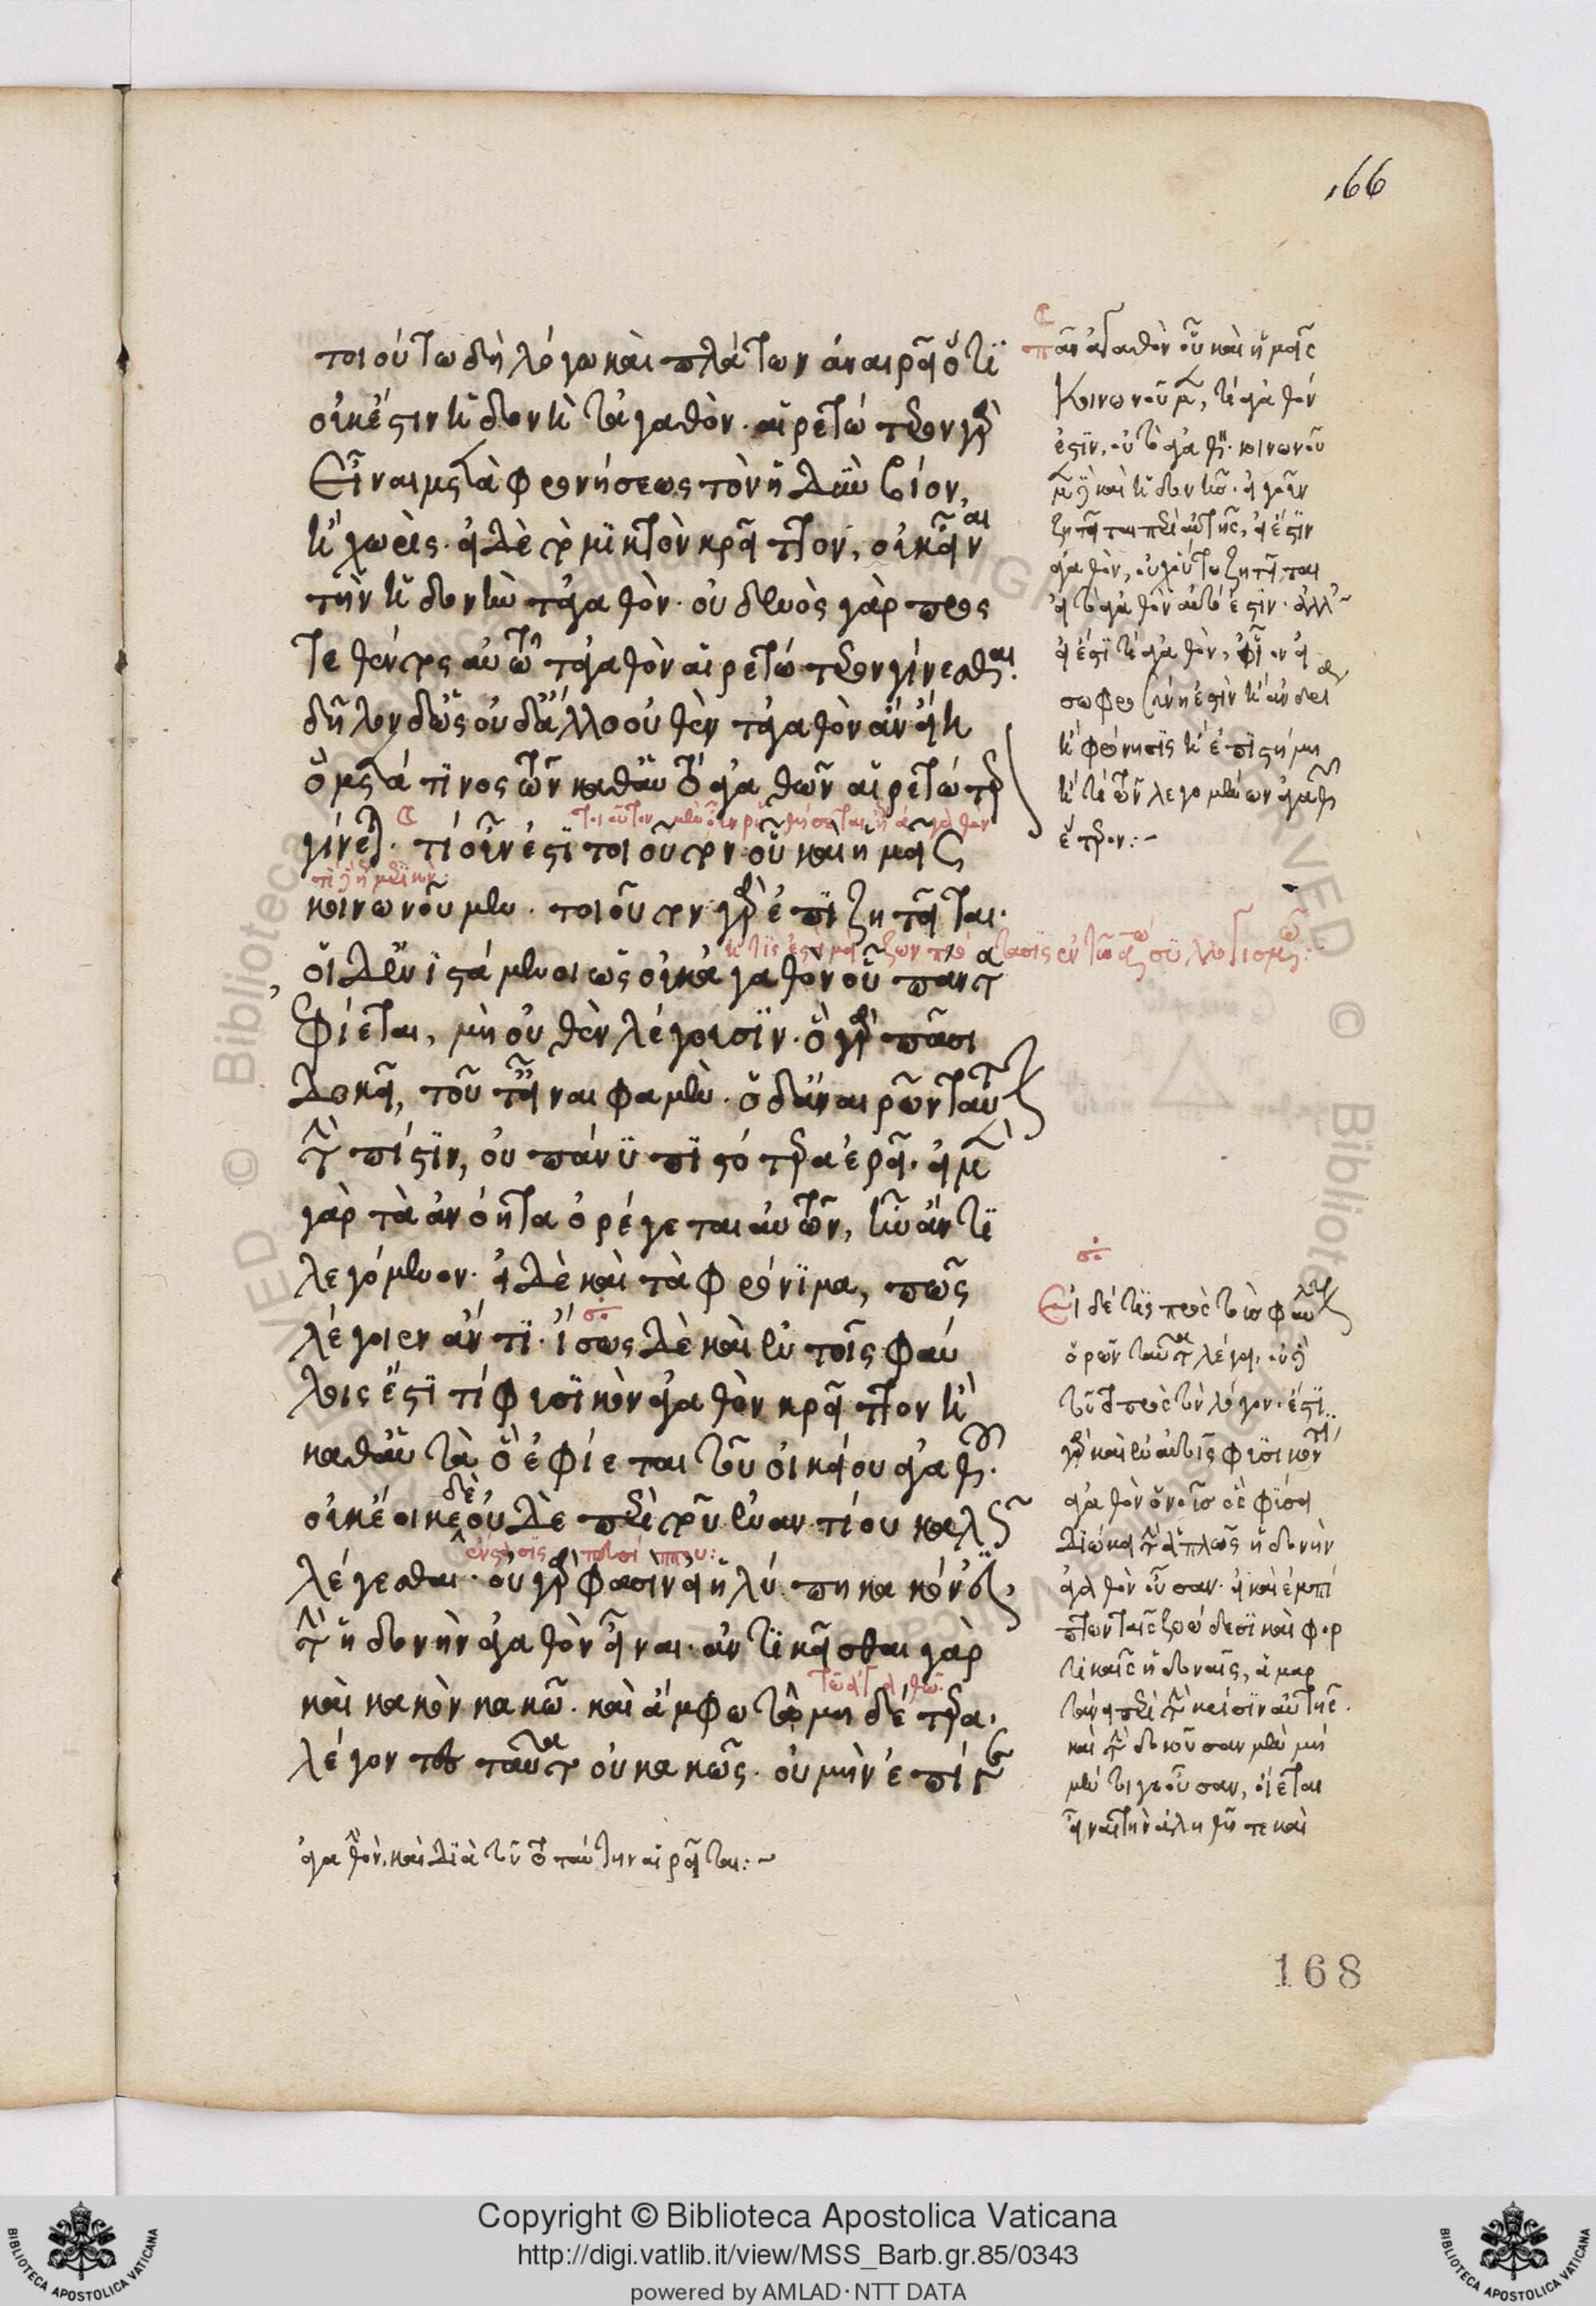 166
τοιούτω δὴ λόγω καὶ πλάτων ἀναιρεῖ ὅτι
οὐκ έστιν ἡδονὴ τἀγαθόν. αἱρετώτερον γὰρ
εἶναι μετὰ φρονήσεως τὸν ἡδὺν βίον,
ἢ χωρίς. εἰ δὲ τὸ μικτὸν κρεῖττον, οὐκ εἶναι
τὴν ἡδονὴν τἀγαθόν. οὐδενὸς γὰρ προς
τεθέντος αὐτῶ τἀγαθὸν αἱρετώτερον γίνεσθαι.
δῆλον δ' ὡς οὐδ' ἄλλο οὐθὲν τἀγαθὸν ἂν εἴη
ὃ μετά τινος τῶν καθ' αὑτὸ ἀγαθῶν αἱρετώτερον
γίνεται. τί οὖν ἐστὶ τοιοῦτον οὗ καὶ ἡμεῖς
κοινωνοῦμεν. τοιοῦτον γὰρ ἐπιζητεῖται.
οἱ δ' ἐνιστάμενοι ὡς οὐκ ἀγαθὸν οὗ πάντα
ἐφίεται, μὴ οὐθὲν λέγουσιν. ὃ γὰρ πᾶσι
δοκεῖ, τοῦτ' εἶναι φαμέν. ὁ δ' ἀναιρῶν ταύτην
τὴν πίστιν, οὐ πάνυ πιστότερα ἐρεῖ. εἰ μὲν
γὰρ τὰ ἀνόητα ὀρέγεται αὐτῶν, ἦν ἄν τι
λεγόμενον. εἰ δὲ καὶ τὰ φρόνιμα, πῶς
λέγοιεν ἄν τι. ἴσως δὲ καὶ ἐν τοῖς φαύ
λοις ἔστι τί φυσικὸν ἀγαθὸν κρεῖττον ἢ
καθ' αὑτὰ ὃ ἐφίεται τοῦ οἰκείου ἀγαθοῦ.
οὐκ έοικε δὲ οὐδὲ περὶ τοῦ ἐναντίου καλῶς
λέγεσθαι. οὐ γάρ φασιν εἰ ἡ λύπη κακόν ἐστι,
τὴν ἡδονὴν ἀγαθὸν εἶναι. ἀντικεῖσθαι γὰρ
καὶ κακὸν κακῶ. καὶ ἄμφω τῶ μηδετέρα.
λέγοντες ταῦτα οὐ κακῶς. οὐ μὴν ἐπί γε
ἀγαθόν, καὶ διὰ τοῦτο ταύτην αἱρεῖται:~
πᾶν ἀγαθὸν οὗ καὶ ἡμεῖς
κοινωνοῦμεν, τί ἀγαθόν
ἐστιν, οὐ τὸ ἀγαθόν. κοινωνοῦ
μεν δὲ καὶ ἡδονῆς. εἰ γοῦν
ζητεῖται περὶ αὐτῆς, εἰ ἐστὶν
ἀγαθόν, οὐχ οὕτω ζητεῖται
εἰ τὸ ἀγαθὸν αὐτό ἐστιν. ἀλλ'
εἰ ἐστὶ τί ἀγαθόν,
σωφροσύνη ἐστὶν ἢ ἀνδρεία
ἢ φρόνησις ἢ ἐπιστήμη
ἢ τὶ τῶν λεγομένων ἀγαθῶν
ἕτερον:~
Εἰ δέ τις πρὸς τοὺς φαύλους
ὁρῶν ταῦτα λέγει, οὐδὲ
τοῦτο πρὸς τὸν λόγον. ἐστὶ
γὰρ καὶ ἐν αὐτοῖς φυσικόν τι
ἀγαθὸν
διώκει τὴν ἁπλῶς ἡδονὴν
ἀγαθὸν οὖσαν. εἰ καὶ ἐμπί
πτων ταῖς ζωώδεσι καὶ φορ
τικαῖς ἡδοναῖς, ἁμαρ
τάνει περὶ τὴν κρίσιν αὐτῆς.
καὶ τὴν δοκοῦσαν μὲν μὴ
μέντοι γε οὖσαν, οἴεται
εἶναι τὴν ἀληθῆ τε καὶ
168
Copyright © Biblioteca Apostolica Vaticana
http://digi.vatlib.it/view/MSS_Barb.gr.85/0343
powered by AMLAD·NTT DATA
BIBLIOTECA APOSTOLICA VATICANA
BIBLIOTECA APOSTOLICA VATICANA